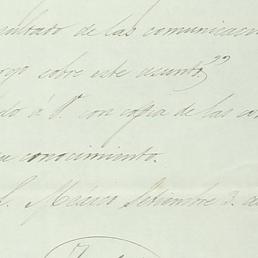 sultado de las comunicacion
orgo sobre este asunto."
do á V. con copia de las co
su conocimiento.
S. México Setiembre 3. de